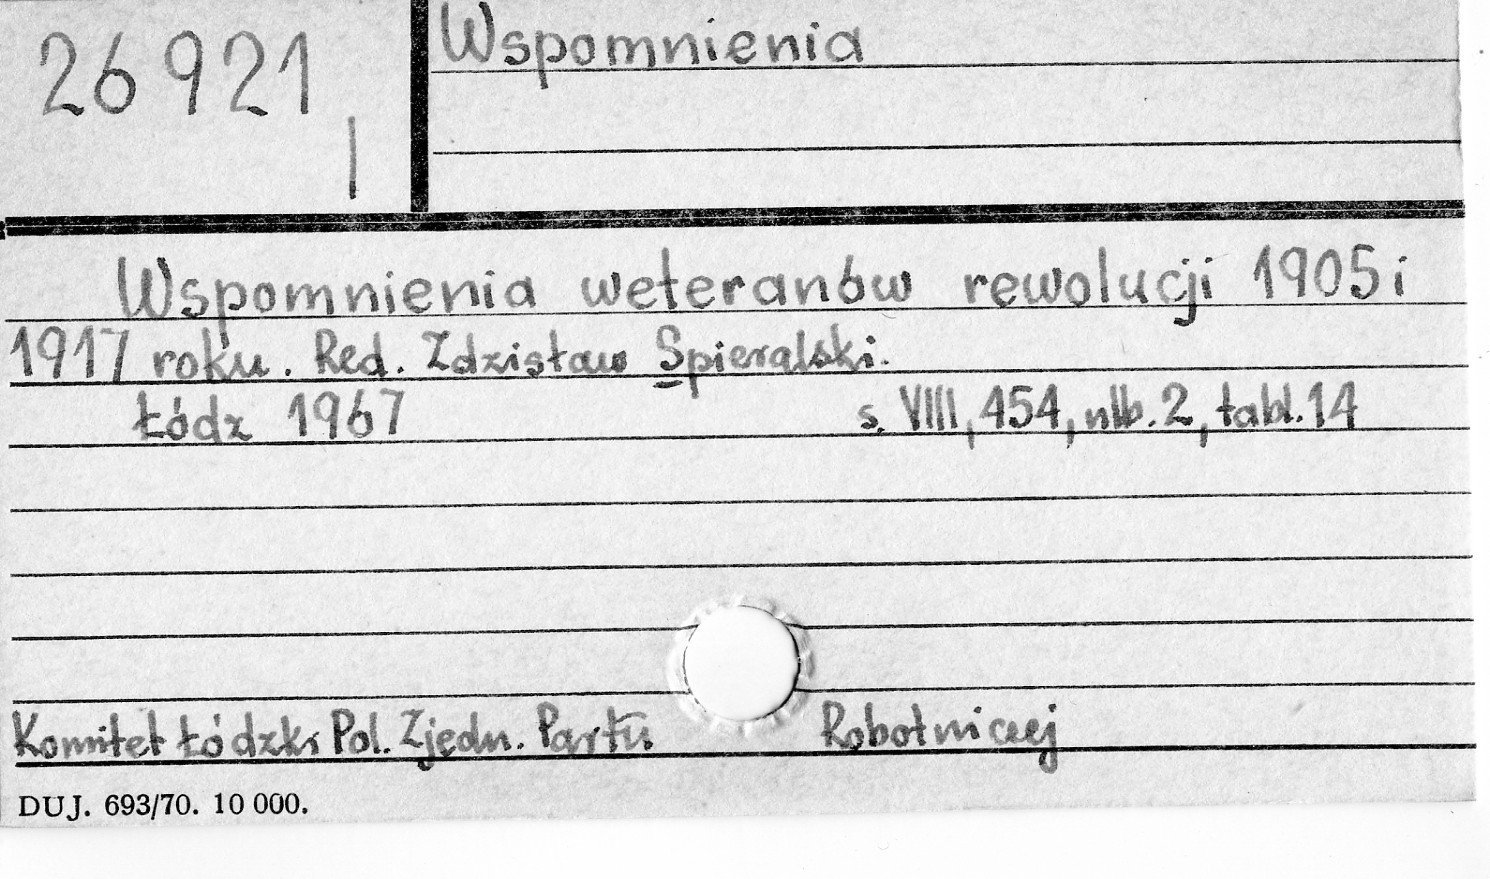 26921
I
Wspomnienia
Wspomnienia weteranów rewolucji 1905 i
1917 roku. Red. Zdzisław Spieralski.
Łódz 1967 s. VIII, 454, nlb. 2, tabl. 14
Komitet Łódzki Pol. Zjedn. Partii Robotniczej
DUJ. 693/70. 10 000.